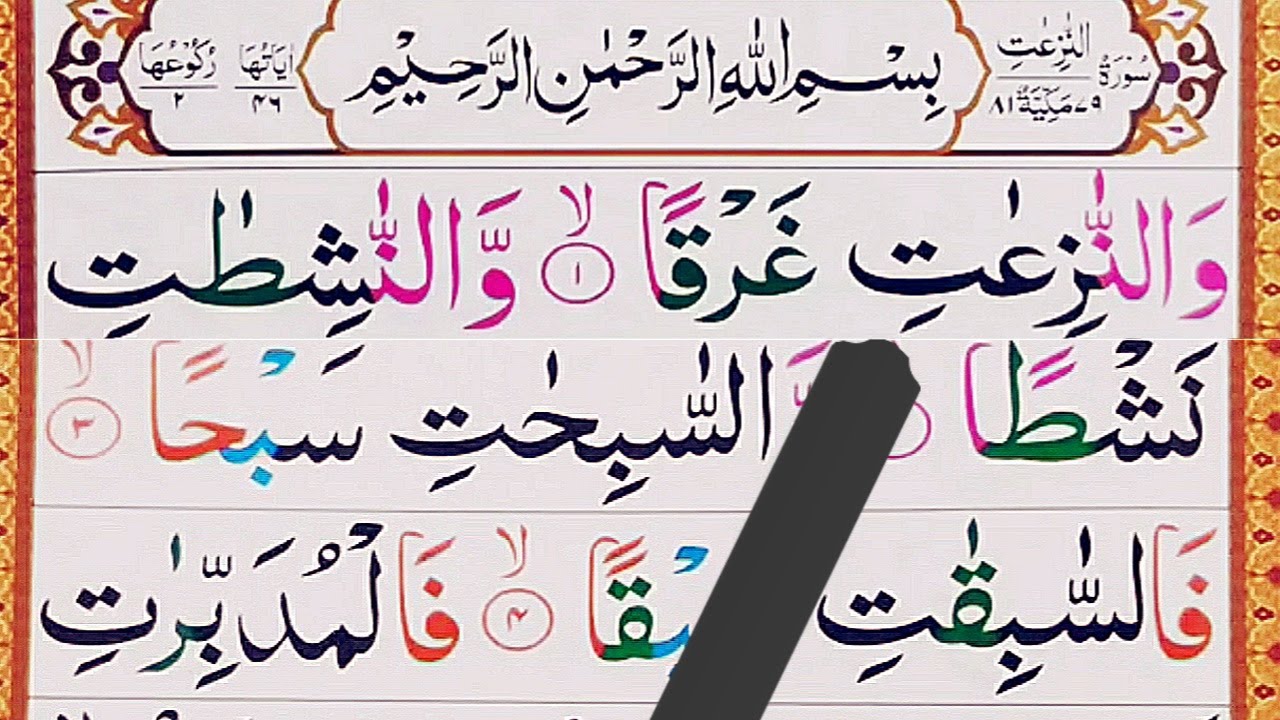 سُوْرَةُ النّٰزِعٰتِ
٧٩ مَكِّيَّةٌ ٨١
بِسْمِ اللّٰهِ الرَّحْمٰنِ الرَّحِيْمِ
اٰيَاتُهَا ٤٦
رُكُوْعُهَا ٢
وَالنّٰزِعٰتِ غَرْقًا ۙ ١ وَّالنّٰشِطٰتِ
نَشْطًا السّٰبِحٰتِ سَبْحًا ۙ ٣
فَالسّٰبِقٰتِ ۙ ٤ فَالْمُدَبِّرٰتِ